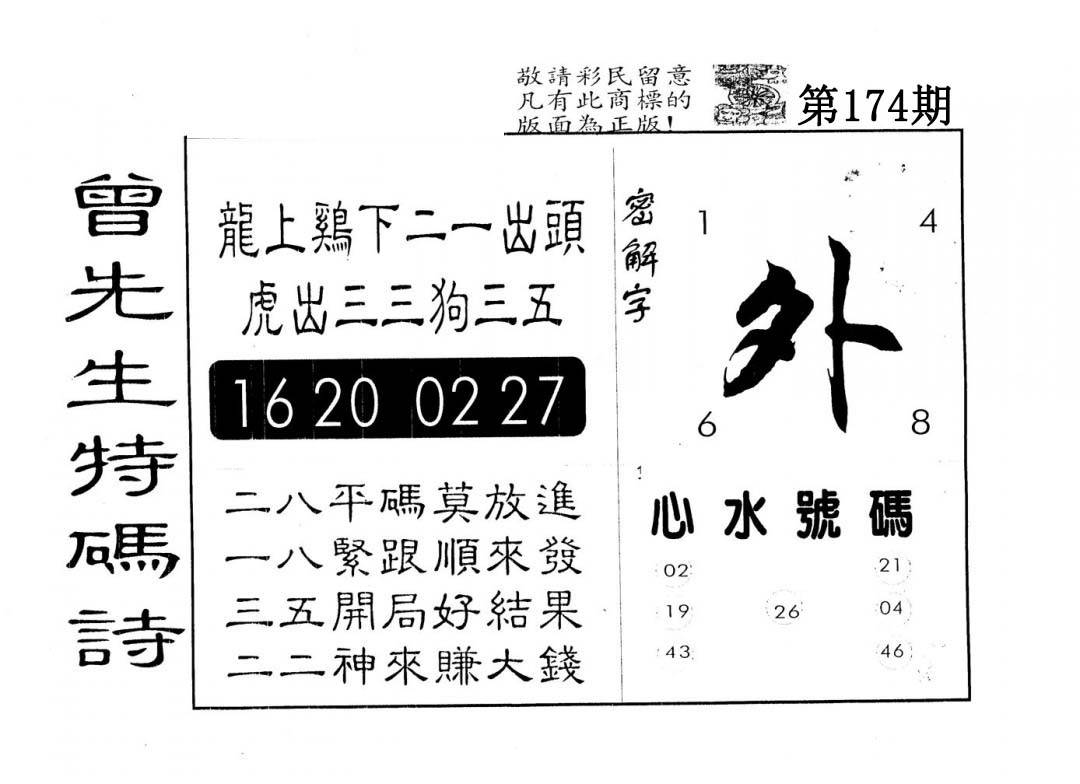 敬請彩民留意
凡有此商標的
版面為正版!
第174期
曾先生特碼詩
龍上鷄下二一出頭
虎出三三狗三五
16 20 02 27
二八平碼莫放進
一八緊跟順來發
三五開局好結果
二二神來賺大錢
密解字
1 4
外
6 8
心水號碼
02 21
19 26 04
43 46